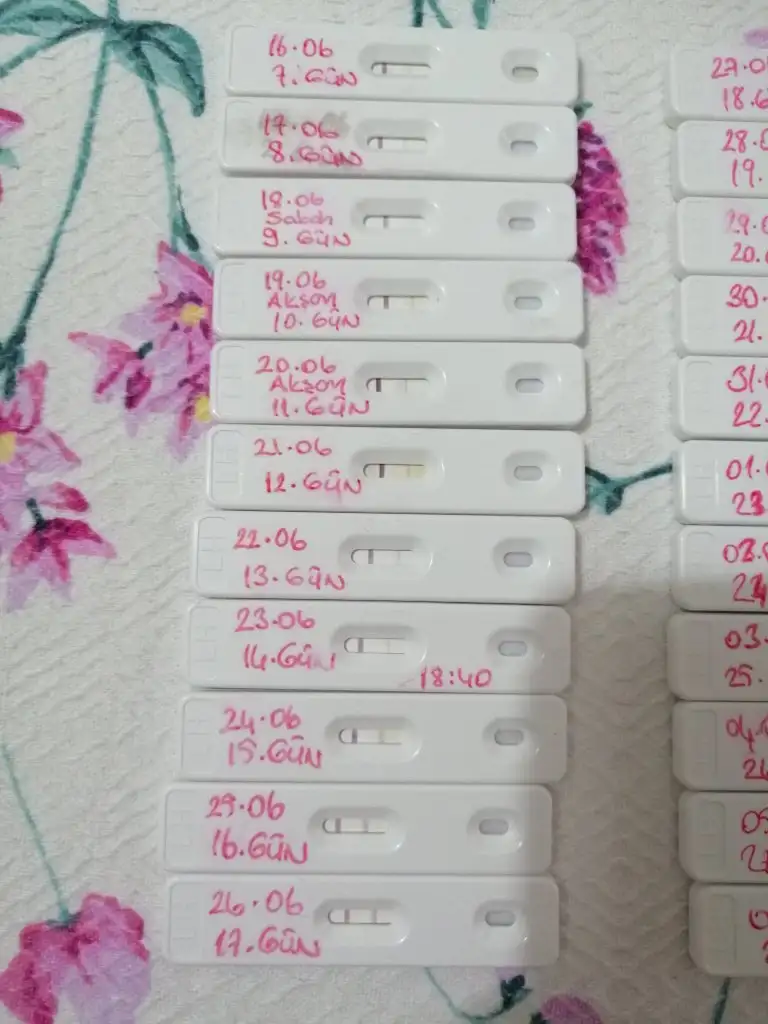 16.06
7.GÜN
17.06
8.GÜN
18.06
Sabah
9.GÜN
19.06
Akşam
10.GÜN
20.06
Akşam
11.GÜN
21.06
12.GÜN
22.06
13.GÜN
23.06
14.GÜN
18:40
24.06
15.GÜN
25.06
16.GÜN
26.06
17.GÜN
27.0
18.G
28.0
19.
29.0
20.
30.
21.
31.
22.
01.
23
02.
24
03.
25.
04.